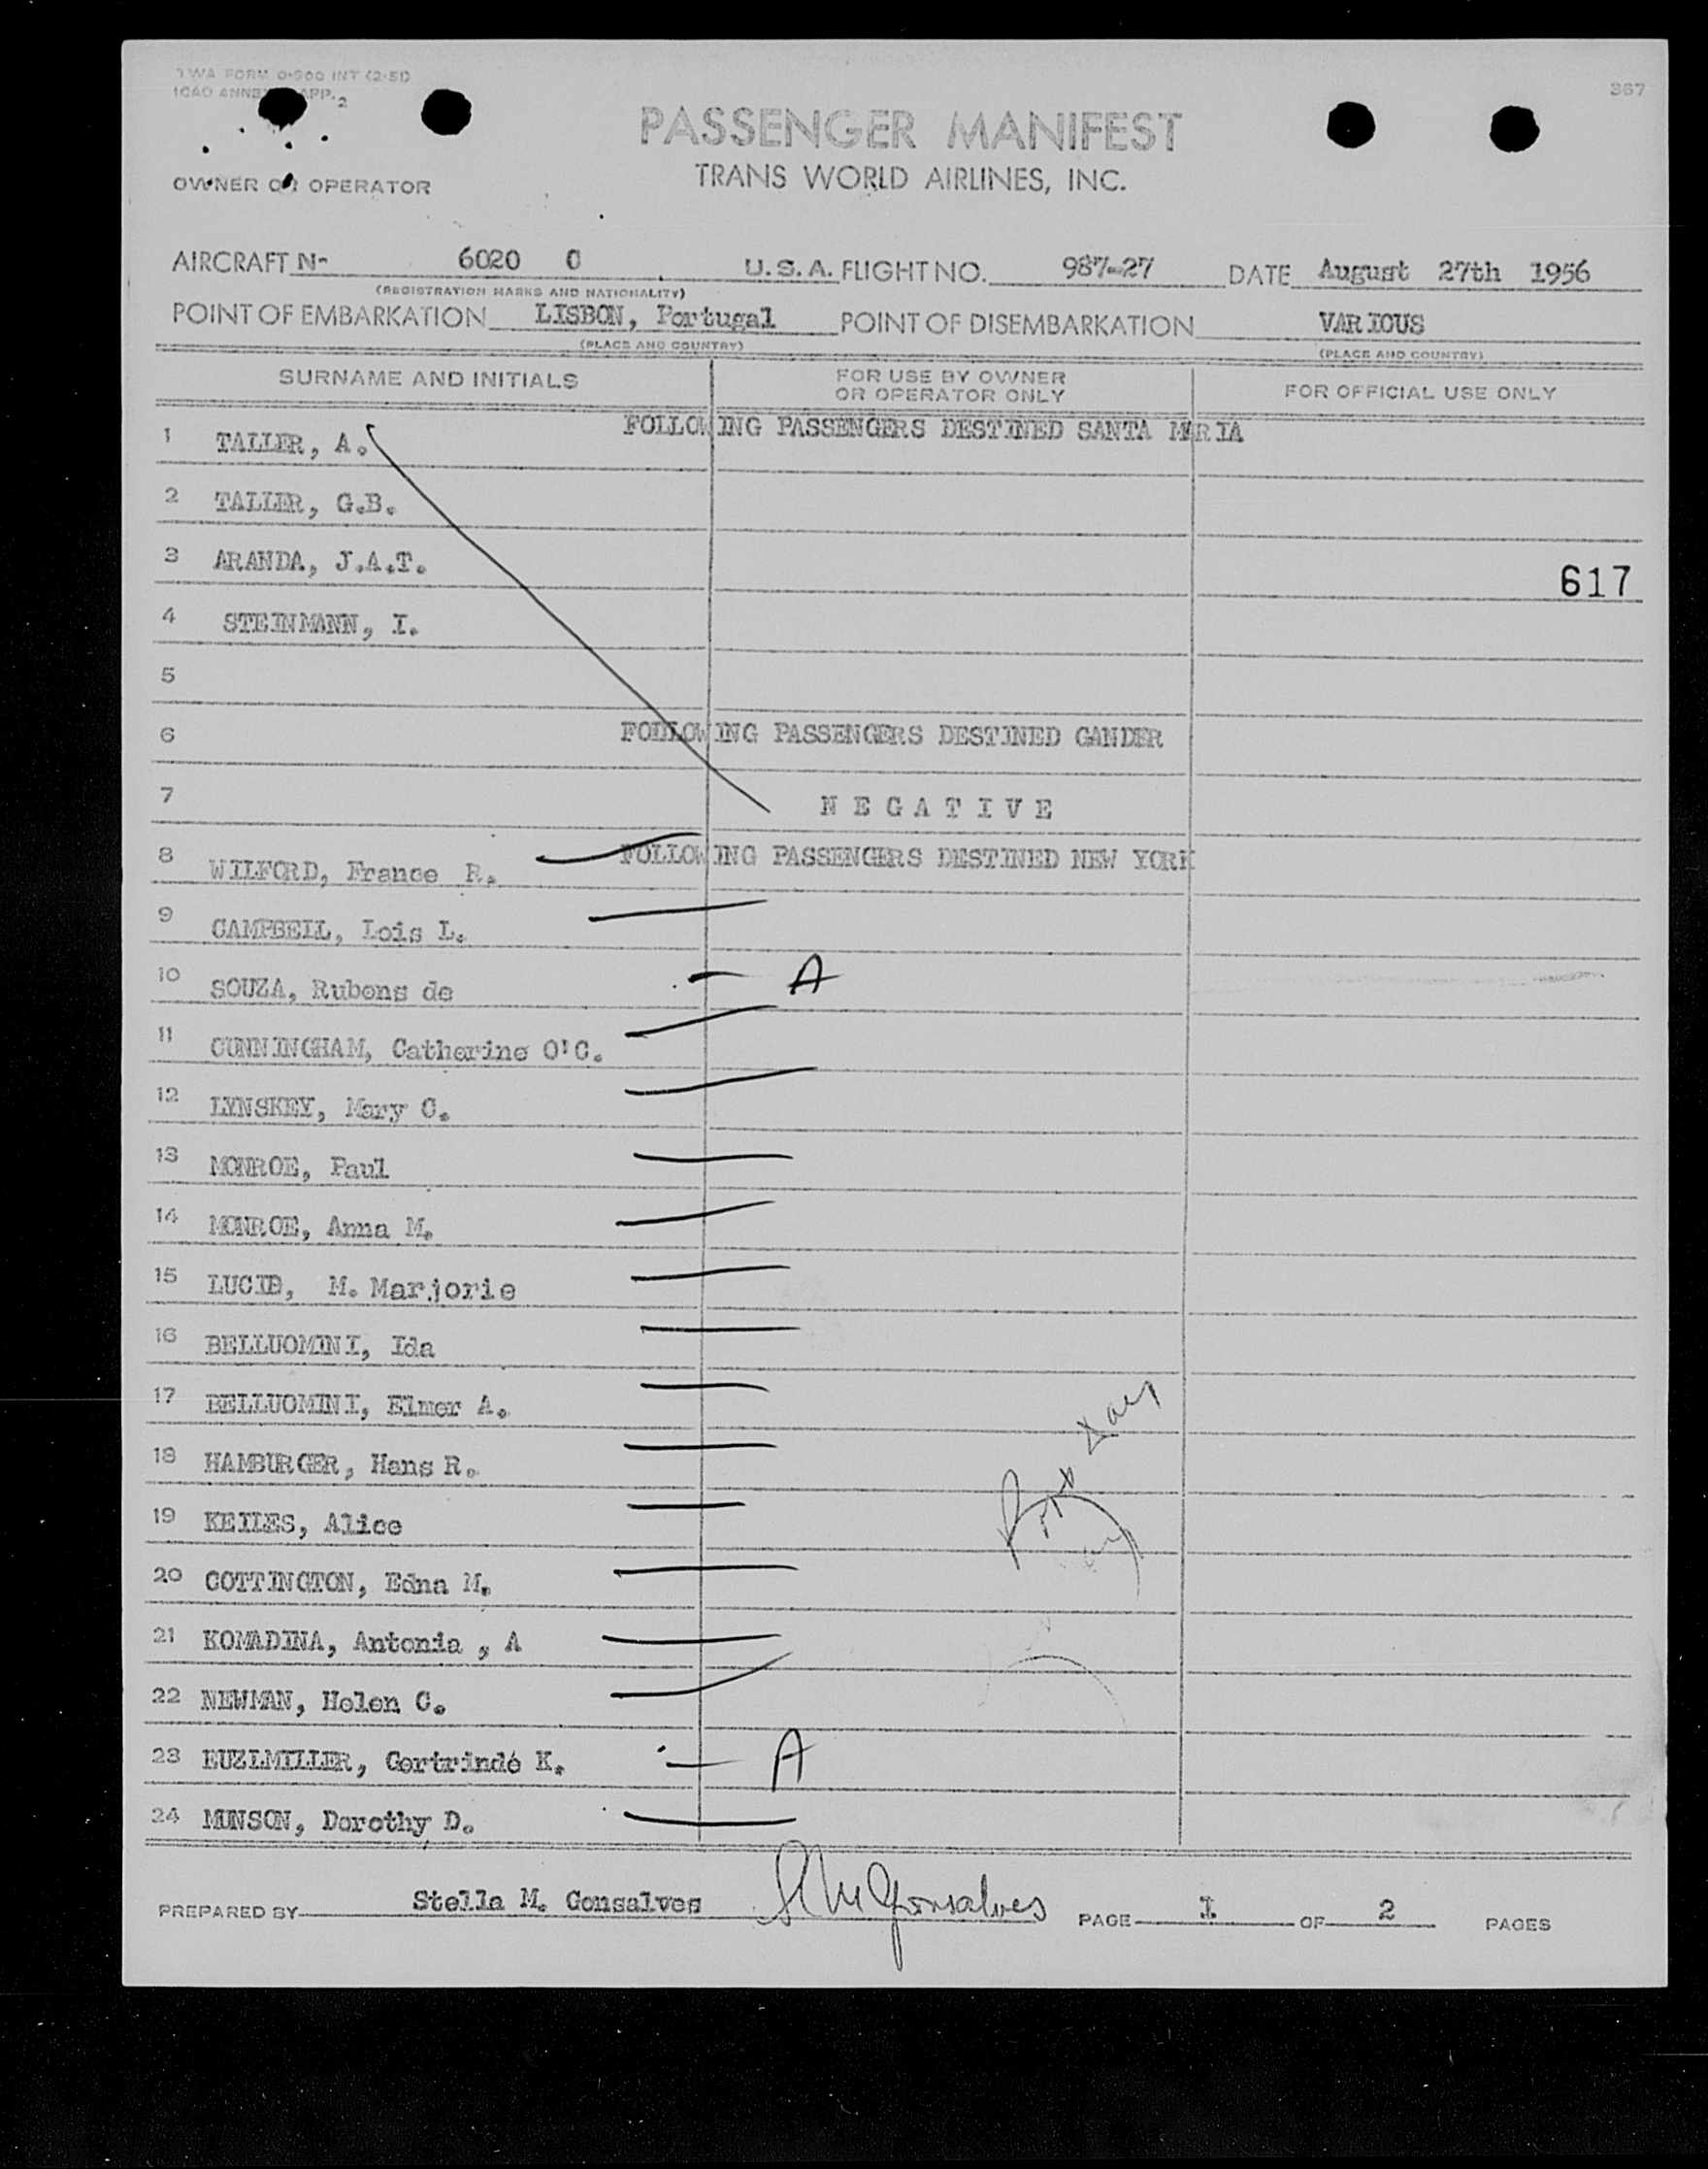 TWA FORM 0-900 INT (2-51)
ICAO APP. 2
367
PASSENGER MANIFEST
TRANS WORLD AIRLINES, INC.
OWNER OR OPERATOR
AIRCRAFT N- 6020 C U.S.A. FLIGHT NO. 987-27 DATE August 27th 1956
(REGISTRATION MARKS AND NATIONALITY)
POINT OF EMBARKATION LISBON, Portugal POINT OF DISEMBARKATION VARIOUS
(PLACE AND COUNTRY) (PLACE AND COUNTRY)
SURNAME AND INITIALS FOR USE BY OWNER OR OPERATOR ONLY FOR OFFICIAL USE ONLY
FOLLOWING PASSENGERS DESTINED SANTA MARIA
1 TALLER, A.
2 TALLER, G.B.
3 ARANDA, J.A.T.
617
4 STEINMANN, I.
5
6 FOLLOWING PASSENGERS DESTINED GANDER
7 N E G A T I V E
FOLLOWING PASSENGERS DESTINED NEW YORK
8 WILFORD, France R.
9 CAMPBELL, Lois L.
10 SOUZA, Rubens de A
11 CUNNINGHAM, Catherine O'C.
12 LYNSKEY, Mary C.
13 MONROE, Paul
14 MONROE, Anna M.
15 LUCIE, M. Marjorie
16 BELLUOMINI, Ida
17 BELLUOMINI, Elmer A.
18 HAMBURGER, Hans R.
19 KEILES, Alice
20 COTTINGTON, Edna M.
21 KOMADINA, Antonia , A
22 NEWMAN, Helen C.
23 EUZLMILLER, Gertrindé K. A
24 MUNSON, Dorothy D.
PREPARED BY Stella M. Gonsalves S M Gonsalves PAGE 1 OF 2 PAGES